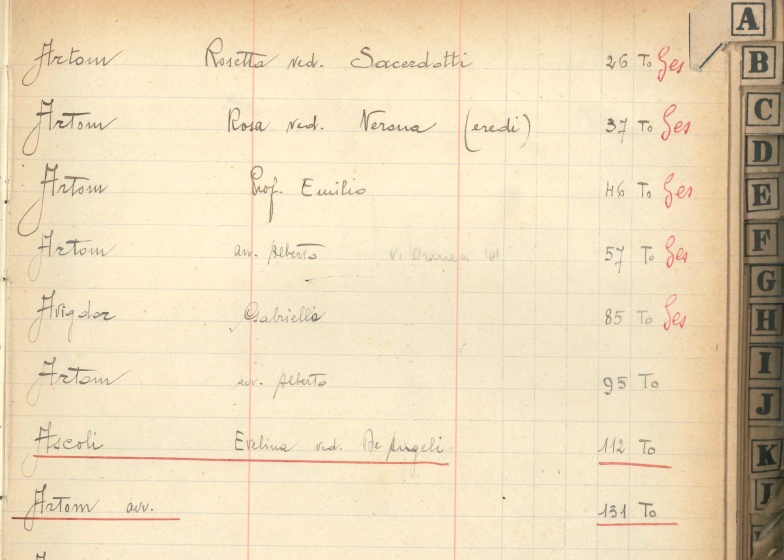 Artom Rosetta ved. Sacerdotti 26 To Ges
Artom Rosa ved. Verona (eredi) 37 To Ges
Artom Prof. Emilio 46 To Ges
Artom avv. Alberto 57 To Ges
Avigdor Gabriella 85 To Ges
Artom avv. Alberto 95 To
Ascoli Evelina ved. De Angeli 112 To
Artom avv. 131 To
A
B
C
D
E
F
G
H
I
J
K